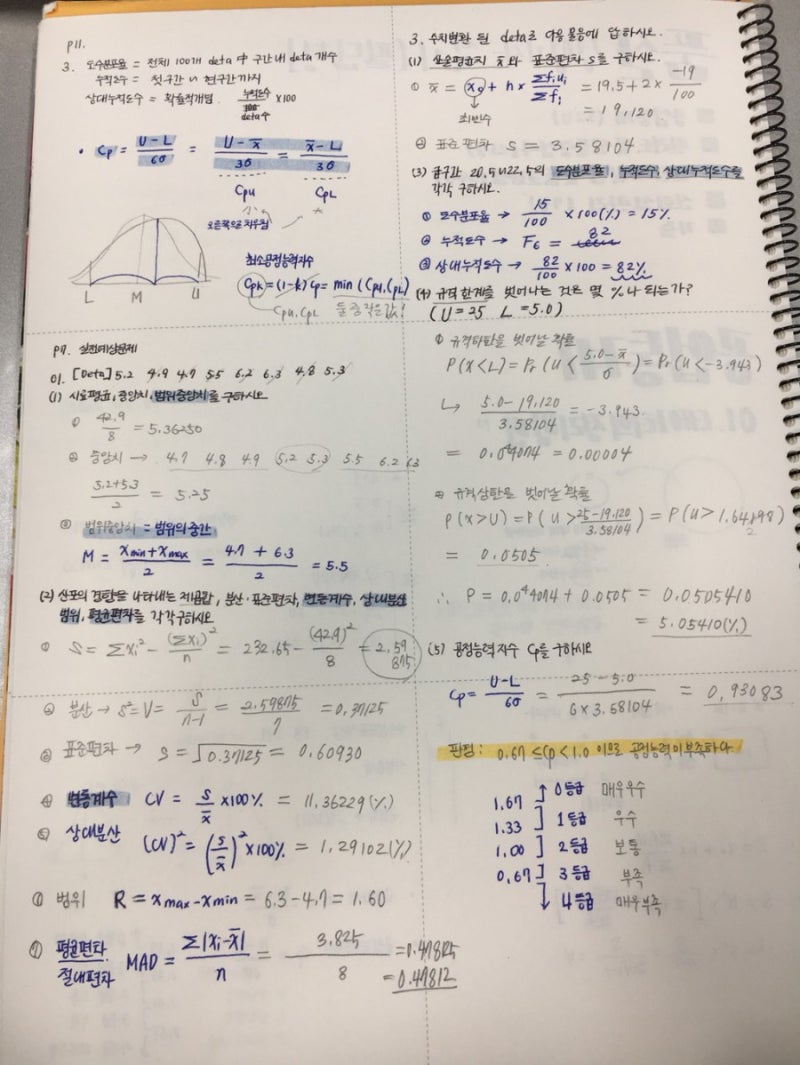 P11.
3. 도수분포율 = 전체 100개 deta 中 구간내 deta 개수
누적도수 = 첫구간 ~ 현구간까지
상대누적도수 = 확률적개념. 누적도수/deta수 ×100
• Cp = U-L/6σ = U-x̄/3σ = x̄-L/3σ
CpU CpL
오른쪽으로 치우침
L M U
최소공정능력지수
Cpk = (1-k)Cp = min (CpU, CpL)
CpU, CpL 둘 중 작은값!
P7. 실전예상문제
01. [Deta] 5.2 4.9 4.7 5.5 6.2 6.3 4.8 5.3
(1) 시료평균, 중앙치, 범위중앙치를 구하시오
① 42.9/8 = 5.36250
② 중앙치 → 4.7 4.8 4.9 5.2 5.3 5.5 6.2 6.3
5.2+5.3/2 = 5.25
③ 범위중앙치 = 범위의 중간
M = xmin+xmax/2 = 4.7 + 6.3/2 = 5.5
(2) 산포의 경향을 나타내는 제곱합, 분산·표준편차, 변동계수, 상대분산
범위, 평균편차를 각각구하시오
① S = Σxi² - (Σxi)²/n = 232.65 - (42.9)²/8 = 2.59875
② 분산 → s² = V = S/n-1 = 2.59875/7 = 0.37125
③ 표준편차 → s = √0.37125 = 0.60930
④ 변동계수 CV = s/x̄ ×100% = 11.36229(%)
⑤ 상대분산 (CV)² = (s/x̄)² ×100% = 1.29102(%)
범위 R = xmax - xmin = 6.3 - 4.7 = 1.60
⑦ 평균편차/절대편차 MAD = Σ|xi-x̄|/n = 3.825/8 = 0.47825
= 0.47812
3. 수치변환 된 deta로 다음 물음에 답하시오.
(1) 산술평균치 x̄와 표준편차 s를 구하시오.
① x̄ = x₀ + h × Σfiui/Σfi = 19.5 + 2 × -19/100
최빈수 = 19.120
② 표준편차 S = 3.58104
(3) 급구간 20.5~22.5의 도수분포율, 누적도수, 상대누적도수를
각각 구하시오.
① 도수분포율 → 15/100 ×100(%) = 15%
② 누적도수 → F6 = 82
③ 상대누적도수 → 82/100 × 100 = 82%
(4) 규격한계를 벗어나는 것은 몇 %나 되는가?
(U=25 L=5.0)
① 규격하한을 벗어날 확률
P(x<L) = Pr (u < 5.0-x̄/σ) = Pr (u < -3.943)
↳ 5.0-19.120/3.58104 = -3.943
= 0.0⁴4074 = 0.00004
② 규격상한을 벗어날 확률
P(x>U) = P( u > 25-19.120/3.58104) = P(u > 1.64198)
= 0.0505
∴ P = 0.0⁴4074 + 0.0505 = 0.0505410
= 5.05410(%)
(5) 공정능력지수 Cp을 구하시오
Cp = U-L/6σ = 25-5.0/6×3.58104 = 0.93083
판정 : 0.67 ≤Cp < 1.0 이므로 공정능력이 부족하다.
↑ 0등급 매우우수
1.67
] 1등급 우수
1.33
] 2등급 보통
1.00
] 3등급 부족
0.67
↓ 4등급 매우부족